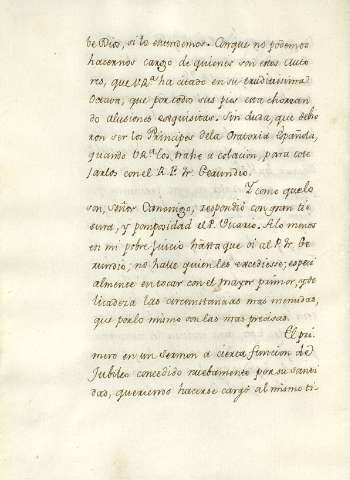 de Dios, si lo entendemos. Conque no podemos
hacernos cargo de quienes son estos Auto
res, que V.Rª ha citado en su erudicissima
Octava, que por todos sus pies esta chorean
do alusiones exquisitas. Sin duda, que debie
ron ser los Principes dela Oratoria Española,
quando V.Rª los trahe à colacion, para cote
jarlos con el R. P. Fr. Gerundio.
Y como que lo
son, señor Canonigo, respondiò con gran tie
sura, y pomposidad el P. Vicario. A lo menos
en mi pobre juicio hasta que oì al P. Fr. Ge
rundio; no hallè quien les excediesse; especi
almente en tocar con el mayor primor, y de
licadeza las circunstancias mas menudas,
que por lo mismo son las mas precisas.
El pri
mero en un Sermon à cierta funcion de
Jubileo concedido nuebamente por su santi
dad, queriendo hacerse cargo al mismo ti-